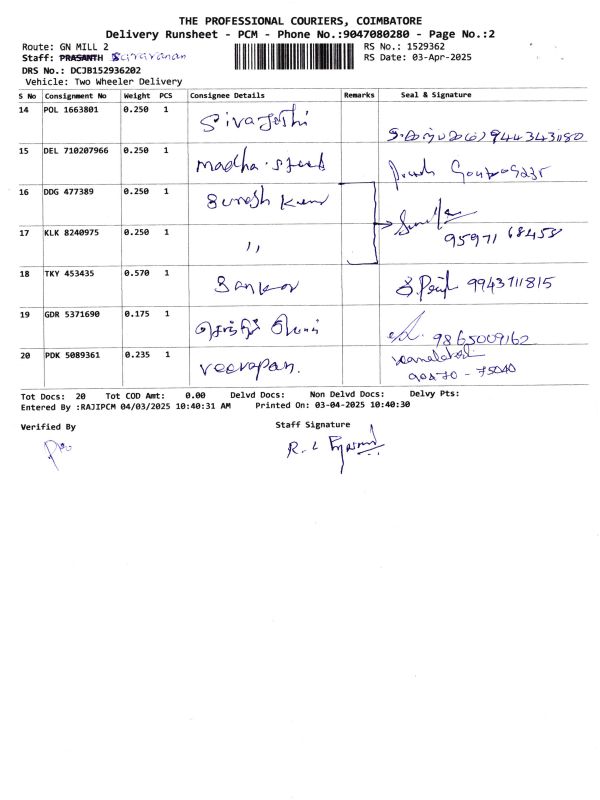 THE PROFESSIONAL COURIERS, COIMBATORE
Delivery Runsheet - PCM - Phone No.:9047080280 - Page No.:2
Route: GN MILL 2
RS No.: 1529362
Staff: PRASANTH Saravanan
RS Date: 03-Apr-2025
DRS No.: DCJB152936202
Vehicle: Two Wheeler Delivery
S No Consignment No Weight PCS Consignee Details Remarks Seal & Signature
14 POL 1663801 0.250 1 Sivajothi 9443431180
15 DEL 710207966 0.250 1 Madha
16 DDG 477389 0.250 1 Suresh Kumar
17 KLK 8240975 0.250 1 ,, 95971 68458
18 TKY 453435 0.570 1 Sankar 9943711815
19 GDR 5371690 0.175 1 9865009162
20 PDK 5089361 0.235 1 Veerapan.
Tot Docs: 20 Tot COD Amt: 0.00 Delvd Docs: Non Delvd Docs: Delvy Pts:
Entered By :RAJIPCM 04/03/2025 10:40:31 AM Printed On: 03-04-2025 10:40:30
Verified By
Staff Signature